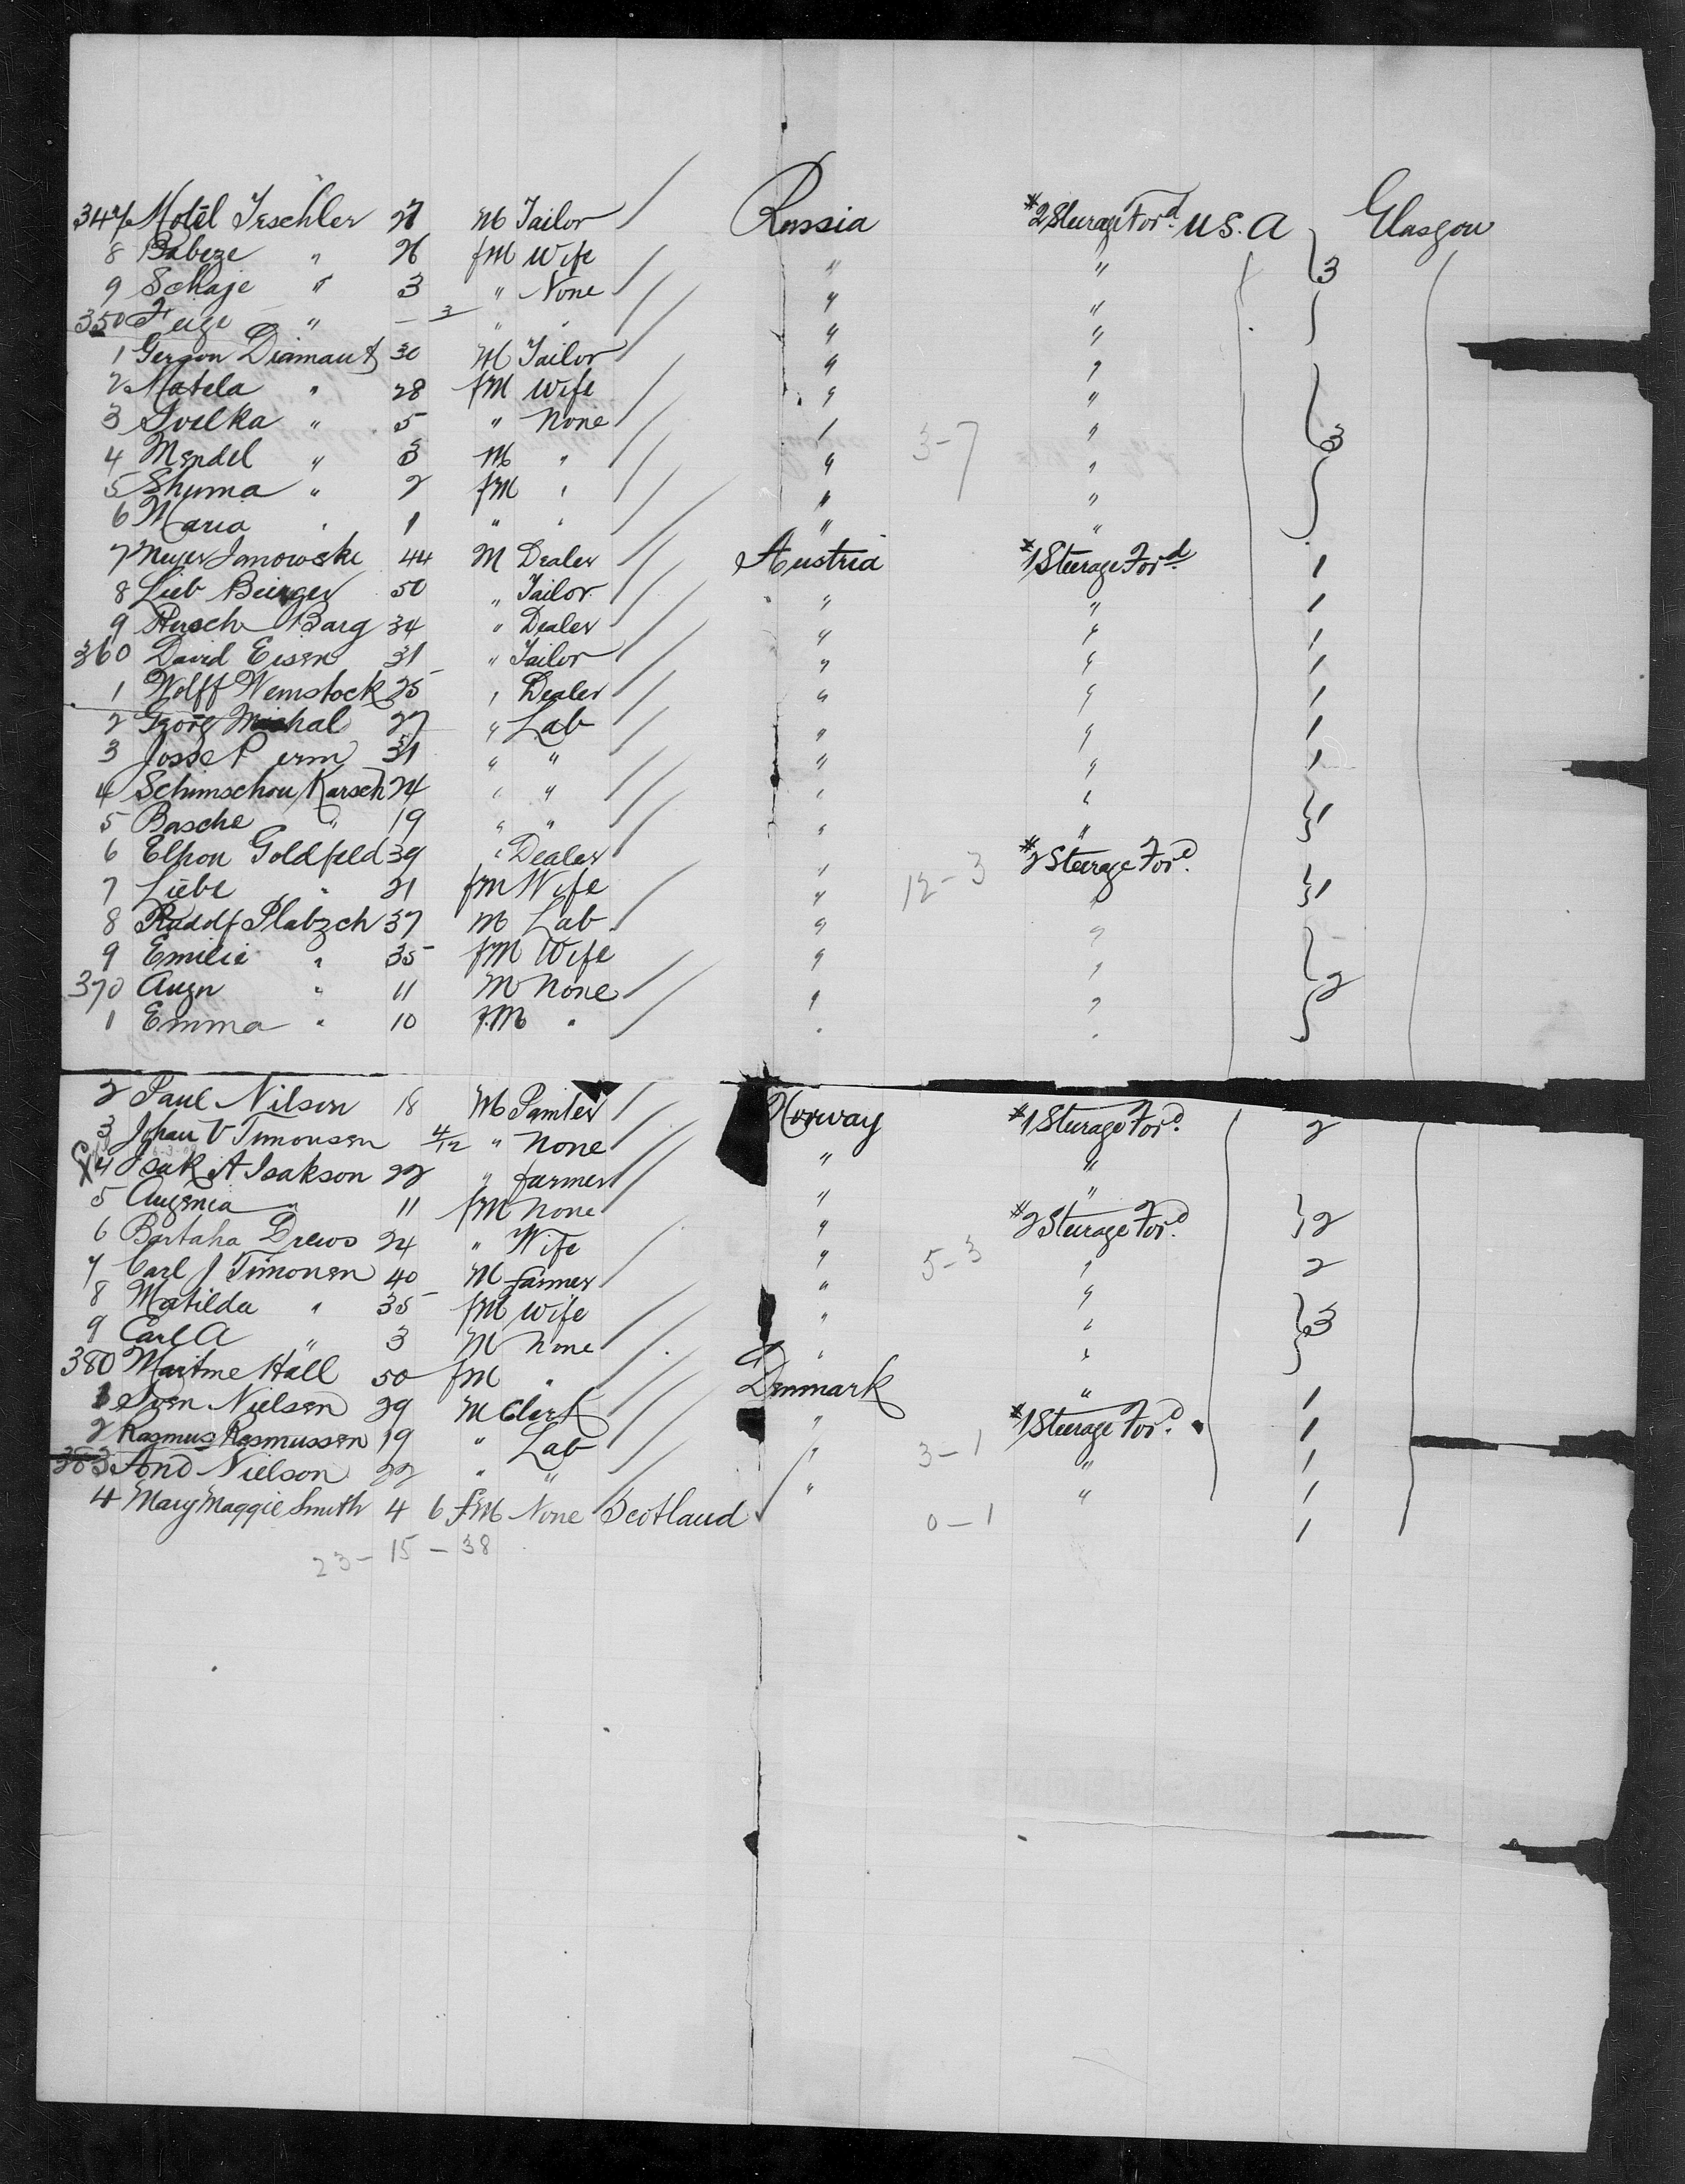 347 Motel Teschler 27 M Tailor Russia #2 Steerage For'd U.S.A 3 Glasgow
8 Babeze " 26 fM Wife " "
9 Schaje " 3 " None " "
350 Feige " - 3 " " " "
1 Gerson Diamant 30 M Tailor " "
2 Matela " 28 fM Wife " "
3 Ivelka " 5 " None " 3-7 " 3
4 Mendel " 3 M " " "
5 Shuma " 2 fM " " "
6 Maria " 1 " " " "
7 Meyer Janowski 44 M Dealer Austria #1 Steerage For'd 1
8 Lieb Beirger 50 " Tailor " " 1
9 Hersch Barg 34 " Dealer " " 1
360 David Eisen 31 " Tailor " " 1
1 Wolff Wemstock 25 " Dealer " " 1
2 Georg Michal 27 " Lab " " 1
3 Josse P erm 31 " " " " 1
4 Schimschou Karsch 24 " " " " 1
5 Basche " 19 " " " "
6 Elhon Goldfeld 39 " Dealer " 12-3 #2 Steerage For'd
7 Liebe " 21 fM Wife " " 1
8 Rudolf Plabzch 37 M Lab " "
9 Emilie " 35 fM Wife " " 2
370 Augn " 11 M None " "
1 Emma " 10 f.M " " "
2 Paul Nilson 18 M Painter Norway #1 Steerage For'd 2
3 Johan V Timonsen 4/12 " None " "
4 Isak A Isakson 22 " farmer " "
5 Augenia " 11 fM None " #2 Steerage For'd 2
6 Bartaha Drews 24 " Wife " 5-3 " 2
7 Carl J Timonen 40 M farmer " "
8 Matilda " 35 fM Wife " " 3
9 Carl A " 3 M None " "
380 Martine Hall 50 fM " Denmark " 1
1 Sven Nielsen 29 M Clerk " #1 Steerage For'd 1
2 Rasmus Rasmussen 19 " Lab " 3-1 " 1
383 And Nielson 22 " " " " 1
4 Mary Maggie Smith 4 6 fM None Scotland 0-1 1
23 - 15 - 38